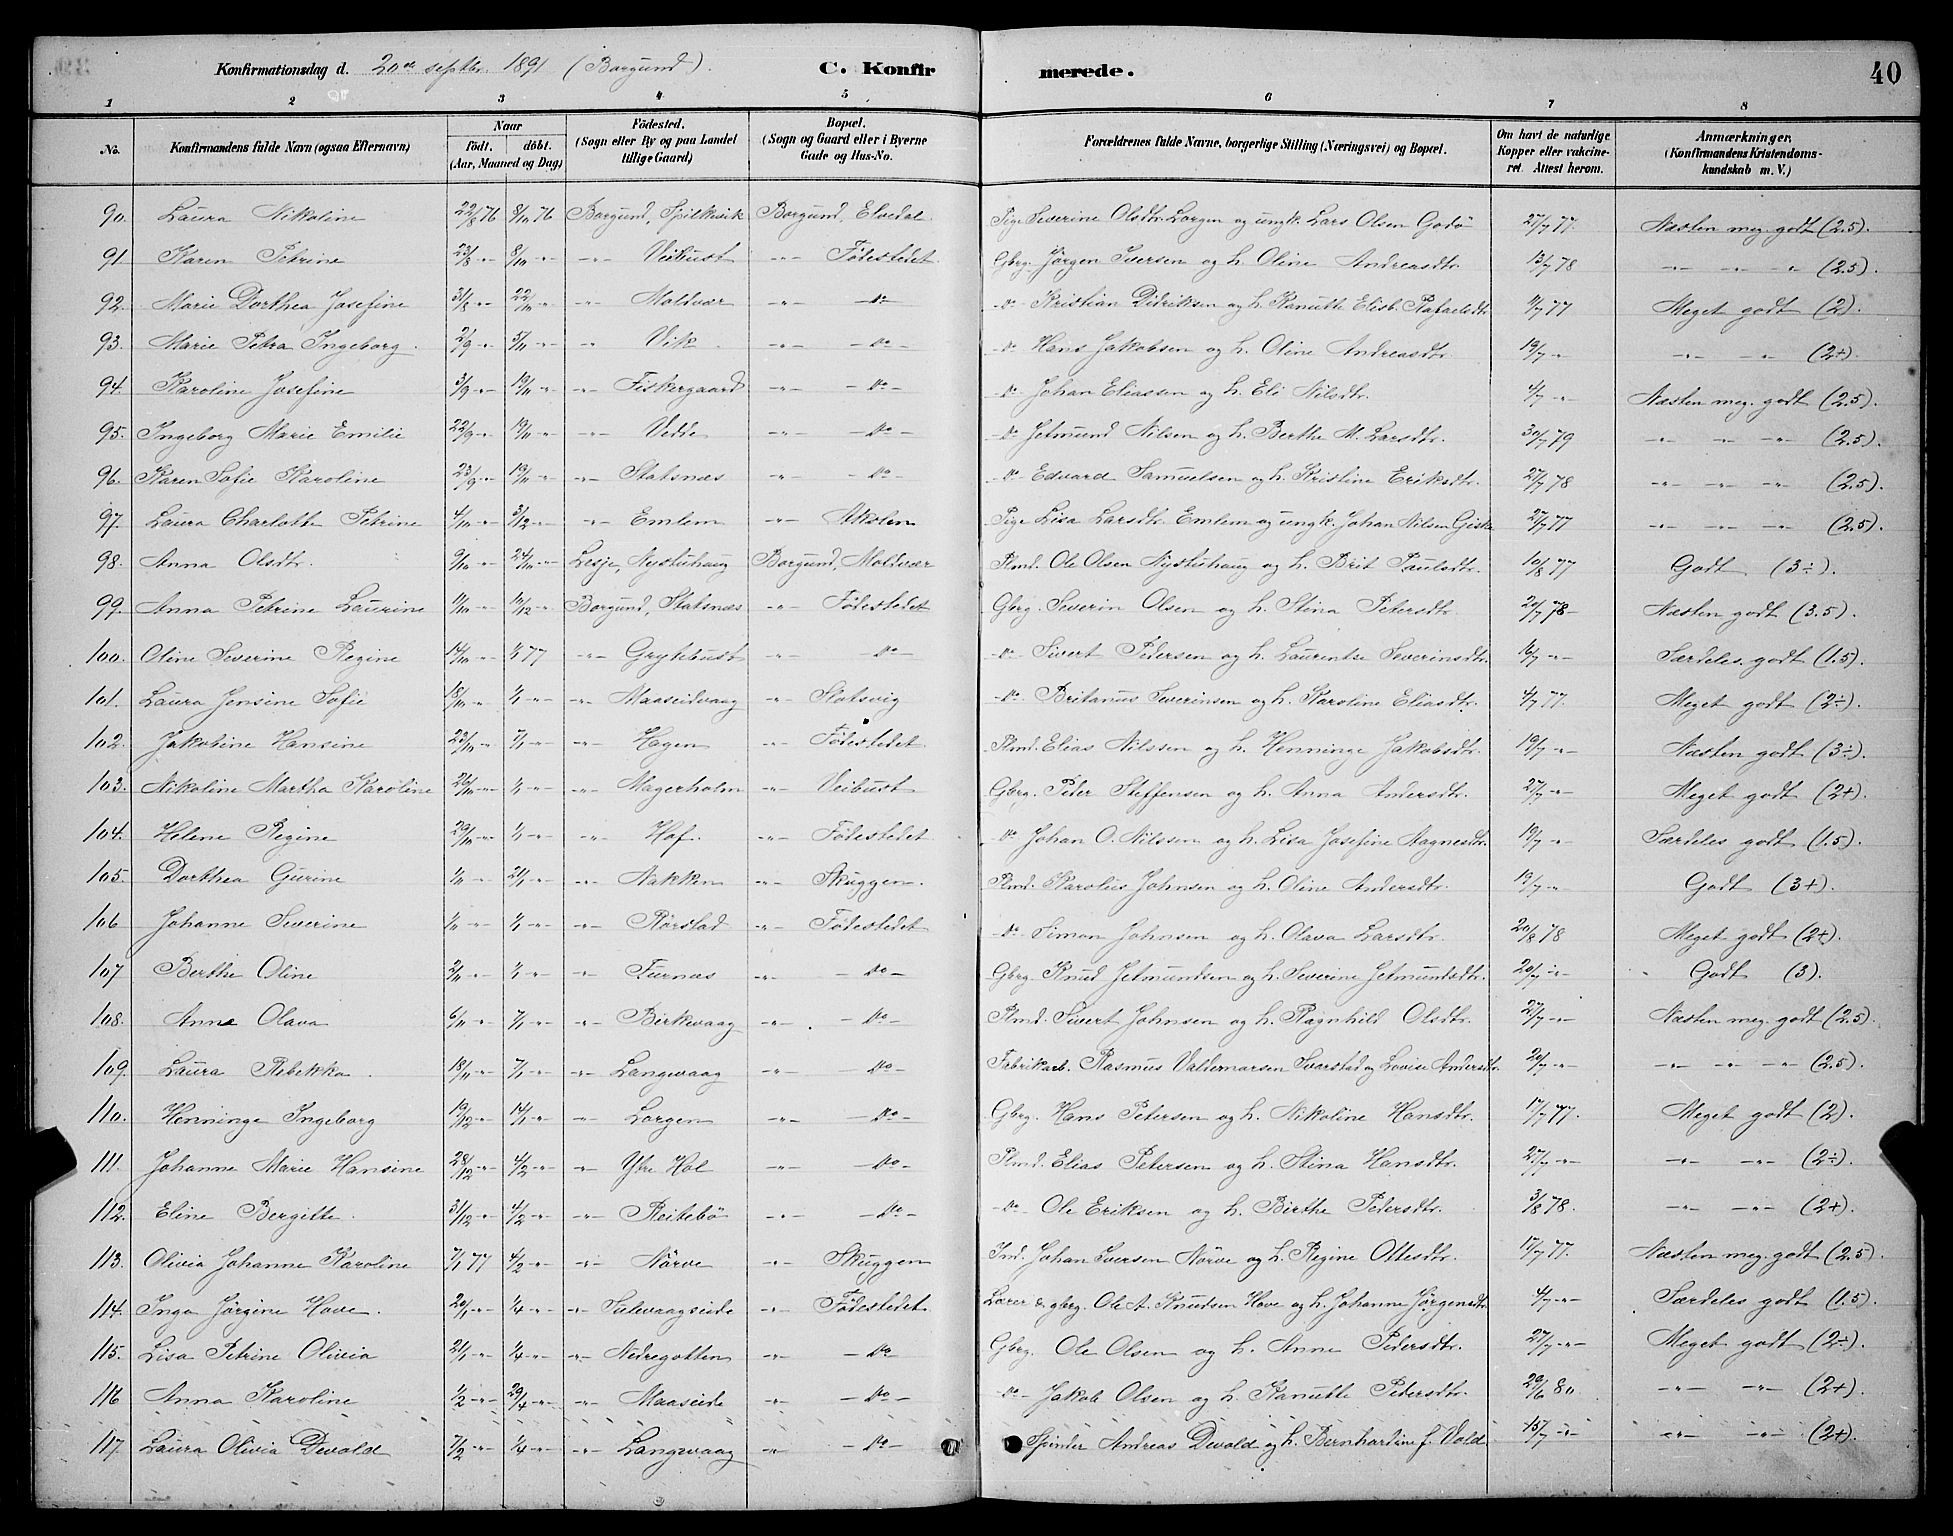 Konfirmationsdag d. 20de septbr. 1891 (Borgund). C. Konfirmerede. 40
1 2 3 4 5 6 7 8
No. Konfirmandens fulde Navn (ogsaa Efternavn) Naar født. døbt. (Aar, Maaned og Dag) Fødested. (Sogn eller By og paa Landet tillige Gaard) Bopæl. (Sogn og Gaard eller i Byerne Gade og Hus-No. Forældrenes fulde Navne, borgerlige Stilling (Næringsvei) og Bopæl. Om havt de naturlige Kopper eller vakcineret. Attest herom. Anmærkninger. (Konfirmandens Kristendomskundskab m. V.)
90. Laura Nikoline 22/8 76 8/10 76 Borgund, Spilkevik Borgund, Elvedal Pige Severine Olsdtr. Lorgen og ungk. Lars Olsen Godø 27/7 77. Næsten meg. godt (2.5).
91 Karen Petrine 23/8 -"- 8/10 -"- -"- Veibust -"- Fødestedet. Gbrg. Jørgen Iversen og h. Oline Andreasdtr. 13/7 78 -"- -"- " (2.5).
92. Marie Dorthea Josefine 31/8 -"- 22/10 -"- -"- Moldvær -"- do -do- Kristian Didriksen og h. Kanutte Elisb. Rafaelsdtr. 11/7 77 Meget godt (2).
93. Marie Petra Ingeborg. 2/9 -"- 5/11 -"- -"- Vik -"- -do- -do- Hans Jakobsen og h. Oline Andreasdtr. 19/7 -"- -"- -"- (2+).
94. Karoline Josefine 3/9 -"- 19/11 -"- -"- Fiskergaard -"- -do- -do- Johan Eliassen og h. Eli Nilsdtr. 4/7 -"- Næsten meg. godt (2.5).
95. Ingeborg Marie Emilie 22/9 -"- 19/11 -"- -"- Vedde -"- -do- -do- Jetmund Nilsen og h. Berthe M. Larsdtr. 30/7 79 -"- -"- -"- (2.5).
96. Karen Sofie Karoline 23/9 -"- 19/11 -"- -"- Slatsnæs -"- -do- -do- Edvard Samuelsen og h. Kristine Eriksdtr. 27/7 78 -"- -"- -"- (2.5).
97. Laura Charlotte Petrine 4/10 -"- 3/12 -"- -"- Emlem -"- Alkolen Pige Lisa Larsdtr. Emlem og ungk. Johan Nilsen Giske 27/7 77 -"- -"- -"- (2.5)
98. Anna Olsdtr. 9/10 -"- 24/10 -"- Lesje, Nystuhaug Borgund, Moldvær Plmd. Ole Olsen Nystuhaug og h. Brit Paulsdtr. 10/8 77 Godt (3÷).
99. Anna Petrine Laurine Borgund, Slatsnæs -"- Fødestedet Gbrg. Severin Olsen og h. Stina Petersdtr. 20/7 78- Næsten godt (3.5).
100. Oline Severine Regine 14/10 -"- 1/1 77 -"- Grytebust -"- -do- -do- Sivert Pedersen og h. Laurentse Severinsdtr. 16/7 -"- Særdeles. godt (1.5).
101. Laura Jensine Sofie 18/10 -"- 1/1 -"- -"- Maaseidvaag -"- Slatsvig -do- Britanus Severinsen og h. Karoline Eliasdtr. 4/7 77. Meget godt (2÷).
102. Jakobine Hansine 23/10 -"- 7/1 -"- -"- Hagen -"- Fødestedet. Plmd. Elias Nilssen og h. Henninge Jakobsdtr. 19/7 -"- Næsten godt (3÷).
103. Nikoline Martha Karoline 26/10 -"- 1/1 -"- -"- Magerholm -"- Veibust Gbrg. Peder Steffensen og h. Anna Andersdtr. 27/7 -"- Meget godt (2+).
104. Helene Regine 29/10 -"- 1/1 -"- -"- Hof. -"- Fødestedet. -do- Johan O. Nilssen og h. Lisa Josefine Aagnesdtr. 19/7 -"- Særdeles godt (1.5).
105. Dorthea Gurine 1/11 -"- 21/1 -"- -"- Nakken -"- Skuggen. Plmd. Karolus Johnsen og h. Oline Andersdtr. 19/7 -"- Godt (3+).
106 Johanne Severine 1/11 -"- 1/1 -"- -"- Rørstad -"- Fødestedet -do- Simon Johnsen og h. Olava Larsdtr. 20/8 78 Meget godt (2+).
107 Berthe Oline 2/11 -"- 1/1 -"- -"- Furnæs -"- -do- Gbrg. Knud Jetmundsen og h. Severine Jetmundsdtr. 20/7 -"- Godt (3).
108. Anne Olava 6/11 -"- 7/1 -"- -"- Birkevaag -"- -do- Plmd. Sivert Johnsen og h. Ragnhild Olsdtr. 27/7 -"- Næsten meg. godt (2.5).
109. Laura Rebekka. 18/11 -"- 7/1 -"- -"- Langevaag -"- -do- Fabrikarb. Rasmus Valdemarsen Svorstad og Lovise Andersdtr. 20/7 -"- -"- -"- -"- (2.5).
110. Henninge Ingeborg 19/12 -"- 14/1 -"- -"- Lorgen -"- -do- Gbrg. Hans Petersen og h. Nikoline Hansdtr. 17/7 77. Meget godt (2).
111. Johanne Marie Hansine 28/12 -"- 4/2 -"- -"- Ytre Hol -"- -do- Plmd. Elias Petersen og h. Stina Hansdtr. 27/7 -"- -"- -"- (2÷).
112. Eline Bergitte. 31/12 -"- 4/2 -"- -"- Reitebø -"- -do- -do- Ole Eriksen og h. Birthe Pedersdtr. 3/8 78. -"- -"- (2+).
113. Olivia Johanne Karoline 7/1 77 4/2 -"- -"- Nørve -"- Skuggen Ind. Johan Iversen Nørve og h. Regine Ottesdtr. 17/7 77. Næsten meg. godt (2.5).
114. Inga Jørgine Hove. 20/1 -"- 1/4 -"- -"- Sulevaagseide -"- Fødestedet Lærer & gbrg. Ole A. Knudsen Hove og h. Johanne Jørgensdtr. 4/7 -"- Særdeles godt (1.5).
115. Lisa Petrine Olivia 21/1 -"- 1/4 -"- -"- Nedregotten -"- -do Gbrg. Ole Olsen og h. Anne Pedersdtr. 27/7 -"- Meget godt (2÷).
116 Anna Karoline 1/2 -"- 29/4 -"- -"- Maaseide -"- -do- -do- Jakob Olsen og h. Kanutte Pedersdtr. 29/6 80. -"- -"- (2+).
117. Laura Olivia Devold 7/2 -"- 1/4 -"- -"- Langevaag -"- -do- Spinder Andreas Devold og h. Bernhardine f. Vold 15/7 -"- -"- -"- (2+)